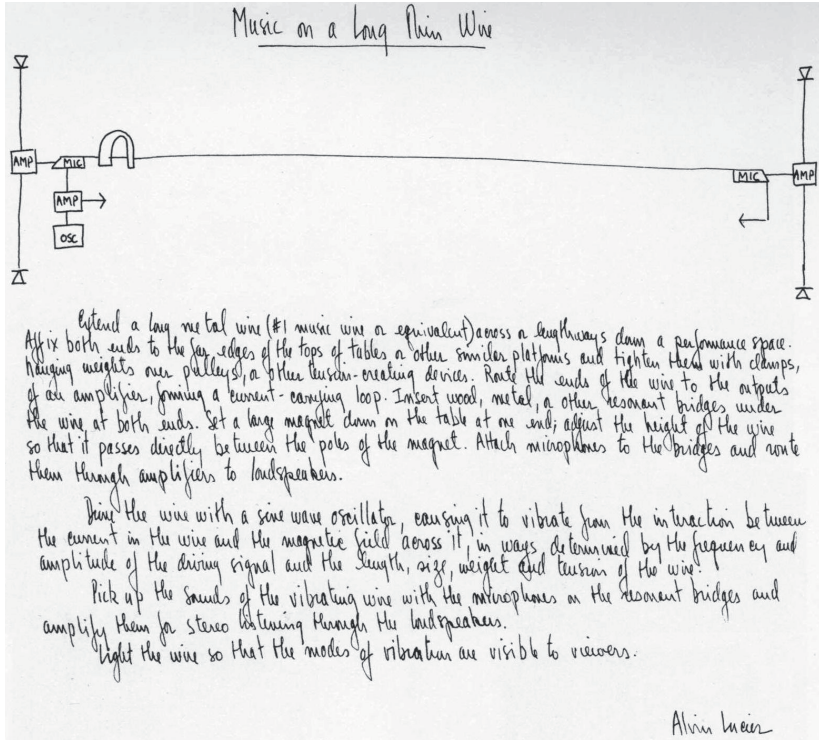 Music on a Long Thin Wire
AMP MIC MIC AMP
AMP
OSC
Extend a long metal wire (#1 music wire or equivalent) across or lengthways down a performance space.
Affix both ends to the far edges of the tops of tables or other similar platforms and tighten them with clamps,
hanging weights over pulleys, or other tension-creating devices. Route the ends of the wire to the outputs
of an amplifier, forming a current-carrying loop. Insert wood, metal, or other resonant bridges under
the wire at both ends. Set a large magnet down on the table at one end; adjust the height of the wire
so that it passes directly between the poles of the magnet. Attach microphones to the bridges and route
them through amplifiers to loudspeakers.
Drive the wire with a sine wave oscillator, causing it to vibrate from the interaction between
the current in the wire and the magnetic field across it, in ways determined by the frequency and
amplitude of the driving signal and the length, size, weight and tension of the wire.
Pick up the sounds of the vibrating wire with the microphones on the resonant bridges and
amplify them for stereo listening through the loudspeakers.
Light the wire so that the modes of vibration are visible to viewers.
Alvin Lucier